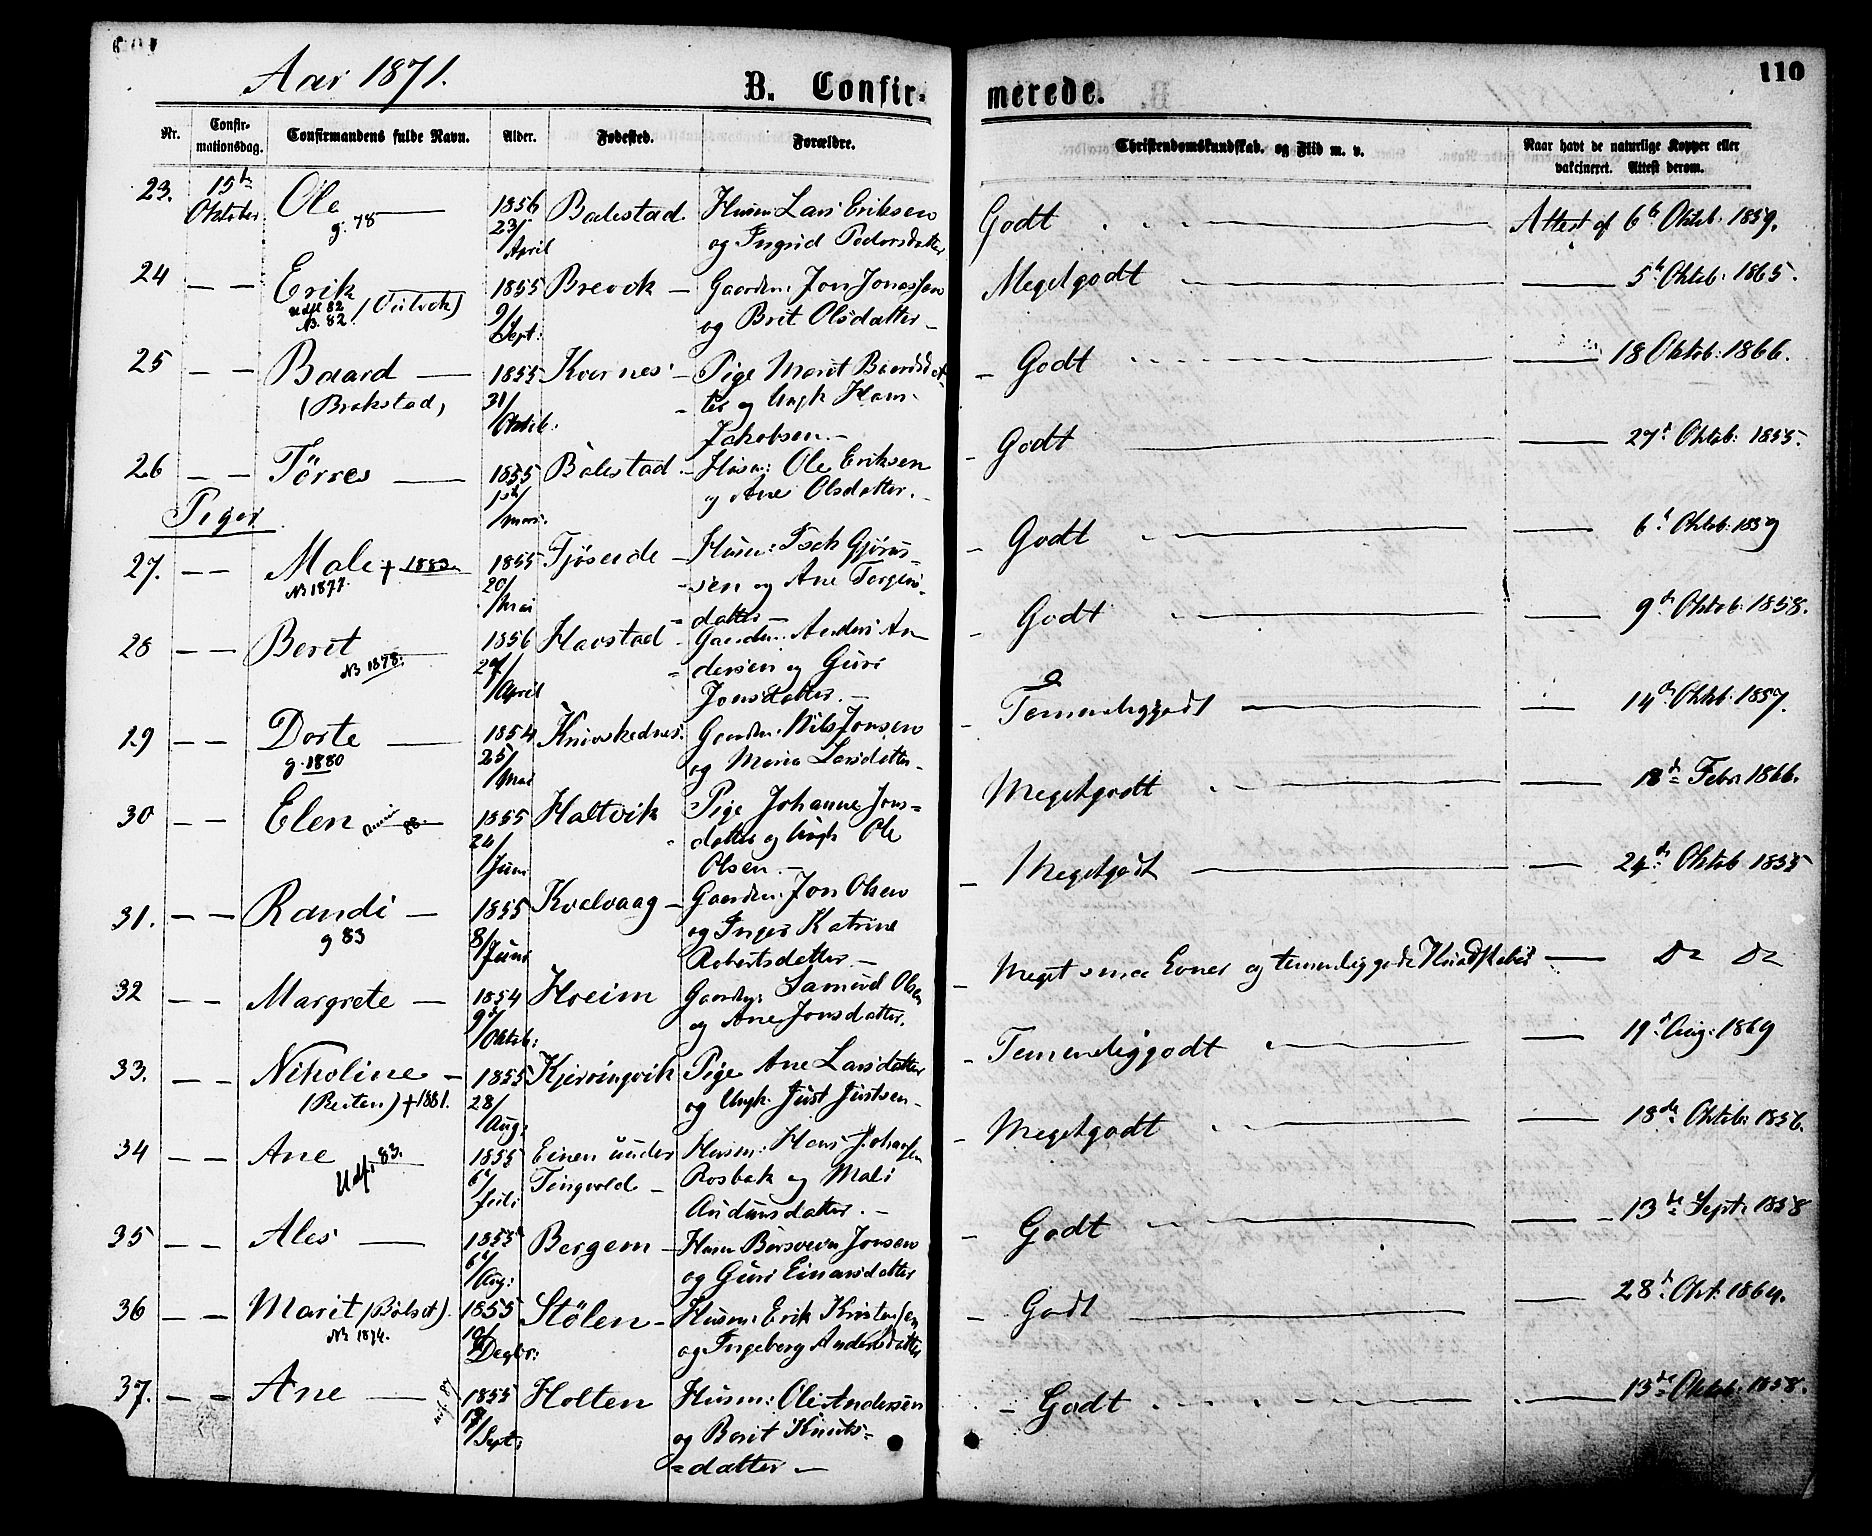 110
Aar 1871.
B. Confir-
merede.
Nr.
Confir-
mationsdag.
Confirmandens fulde Navn.
Alder.
Fødested.
Forældre.
Christendomskundskab, og Flid m. v.
Naar havt de naturlige Kopper eller
vakcineret. Attest derom.
23. 15de Ole — 1856 Balestad Husm: Lars Eriksen Godt — Attest af 6te Oktob: 1859.
Oktober g. 78 23/ April og Ingrid Pedersdatter
24 — — Erik 1855 Brevik — Gaardm: Jon Jonassen Megetgodt — 5te Oktob: 1865.
Udfl 82
N3. 82. 9/ Sept: og Brit Olsdatter —
25 — — Baard — 1855 Kvernes — Pige Marit Baardsdat- — Godt — 18 Oktob: 1866.
(Brekstad) 31/ Oktob: ter og Ungk Hans
Jakobsen. —
26 — — Törres — 1855 Bolestad — Husm: Ole Eriksen — Godt — 27de Oktob: 1855.
og Ane Olsdatter. —
Piger
27. — — Mali † 1883 1855 Tjöside — Husm: Isak Gjörus- — Godt — 6te Oktob: 1859
N3 1877. 20/ Mai sen og Ane Torgers-
datter —
28 — — Beret — 1856 Havstad — Gaardm: Anders An- — Godt — 9de Oktob: 1858.
N3 1878. 27/ April dersen og Guri
Jonsdatter. —
29 — — Dorte — 1854 Knivskednes. Gaardm: Nils Jonsen — Temmeliggodt — 14de Oktob: 1857.
g. 1880 25/ Mai og Maria Larsdatter —
30 — — Elen 88. 1855 Holtvik Pige Johanne Jons- Megetgodt — 18de Febr 1866.
24/ Juni datter og Ungk Ole
Olsen. —
31. — — Randi — 1855 Kvalvaag — Gaardm: Jon Olsen — Megetgodt — 24de Oktob 1855
g 83 8/ Juni og Inger Katrine
Robertsdatter. —
32 — — Margrete — 1854 Hoeim Gaardm: Samuel Olsen — Meget smaa Evner og temmeliggode Kundskaber — Do Do
9de/ Oktob: og Ane Jonsdatter.
33. — — Nikoline — 1855 Kjerringvik Pige Ane Larsdatter — Temmeliggodt — 19de Aug: 1869
(Reiten) † 1881. 28/ Aug: og Ungk. Just Justsen —
34 — — Ane 1855 Einen under Husm: Hans Johansen — Megetgodt — 18de Oktob: 1856.
Udf. 83. 6te/ Juli Tingvold — Rosbak og Mali
Audunsdatter. —
35 — — Ales — 1855 Bergem — Husm Börsvein Jonsen — Godt — 13de Sept: 1858
6te/ Aug: og Guri Einarsdatter
36 — — Marit (Bölset). 1855 Stölen — Husm: Erik Kristensen — Godt — 28de Okt: 1864.
N3 1874. 10/ Decbr: og Ingeborg Andersdatter
37. — — Ane — 1855 Holten Husm: Ole Andersen — Godt — 13de Oktob: 1858.
Sept: og Berit Knuts-
datter —